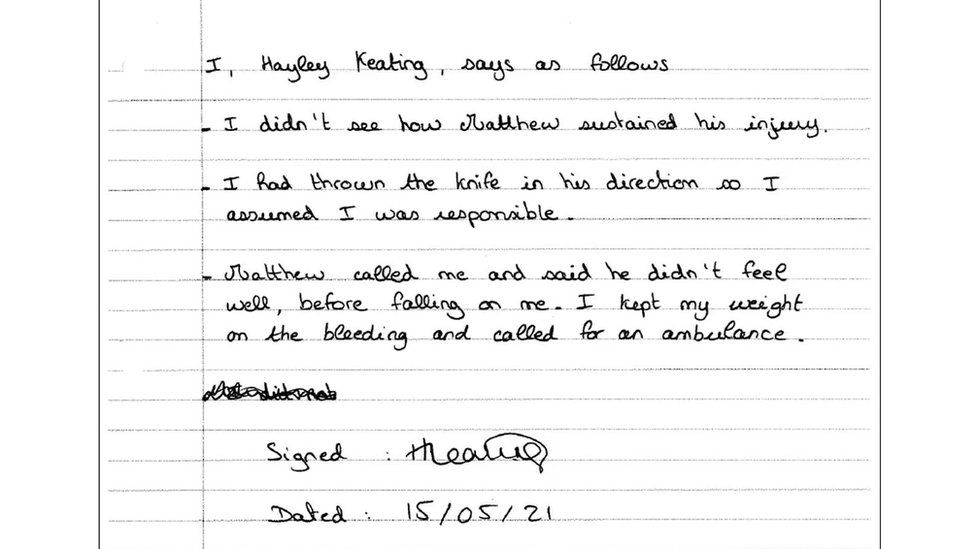 I, Hayley Keating, says as follows
- I didn't see how Matthew sustained his injury.
- I had thrown the knife in his direction so I
assumed I was responsible.
- Matthew called me and said he didn't feel
well, before falling on me. I kept my weight
on the bleeding and called for an ambulance.
Signed : HKeating
Dated : 15/05/21